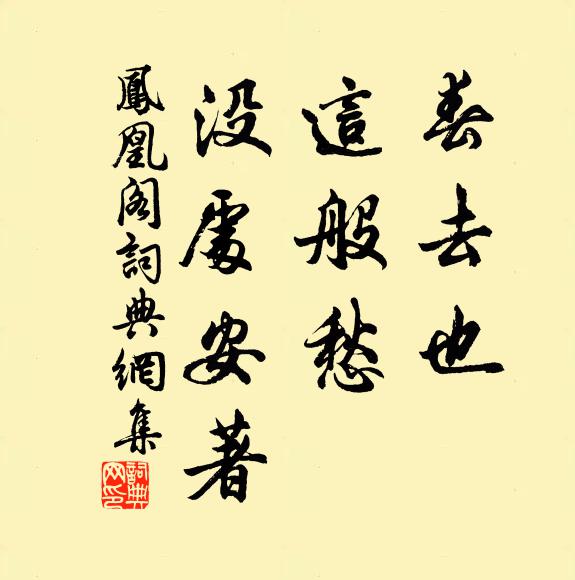 春去也
這般愁
没處安著
鳳凰阁詞典網集
詞典网印